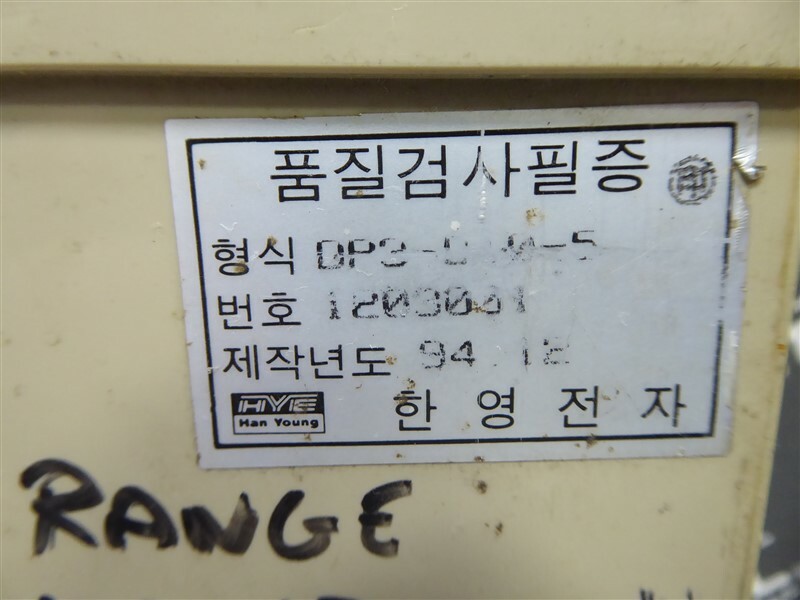 품질검사필증
형식
번호
제작년도 94 12
HYE
Han Young
한영전자
RANGE